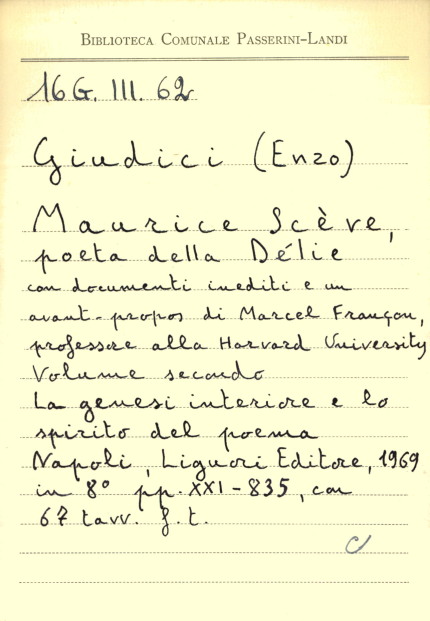 Biblioteca Comunale Passerini-Landi
16 G. III. 62
Giudici (Enzo)
Maurice Scève,
poeta della Délie
con documenti inediti e un
avant-propos di Marcel Françon,
professore alla Harvard University
Volume secondo
La genesi interiore e lo
spirito del poema
Napoli, Liguori Editore, 1969
in 8° pp. XXI-835, con
67 tavv. f. t.
C